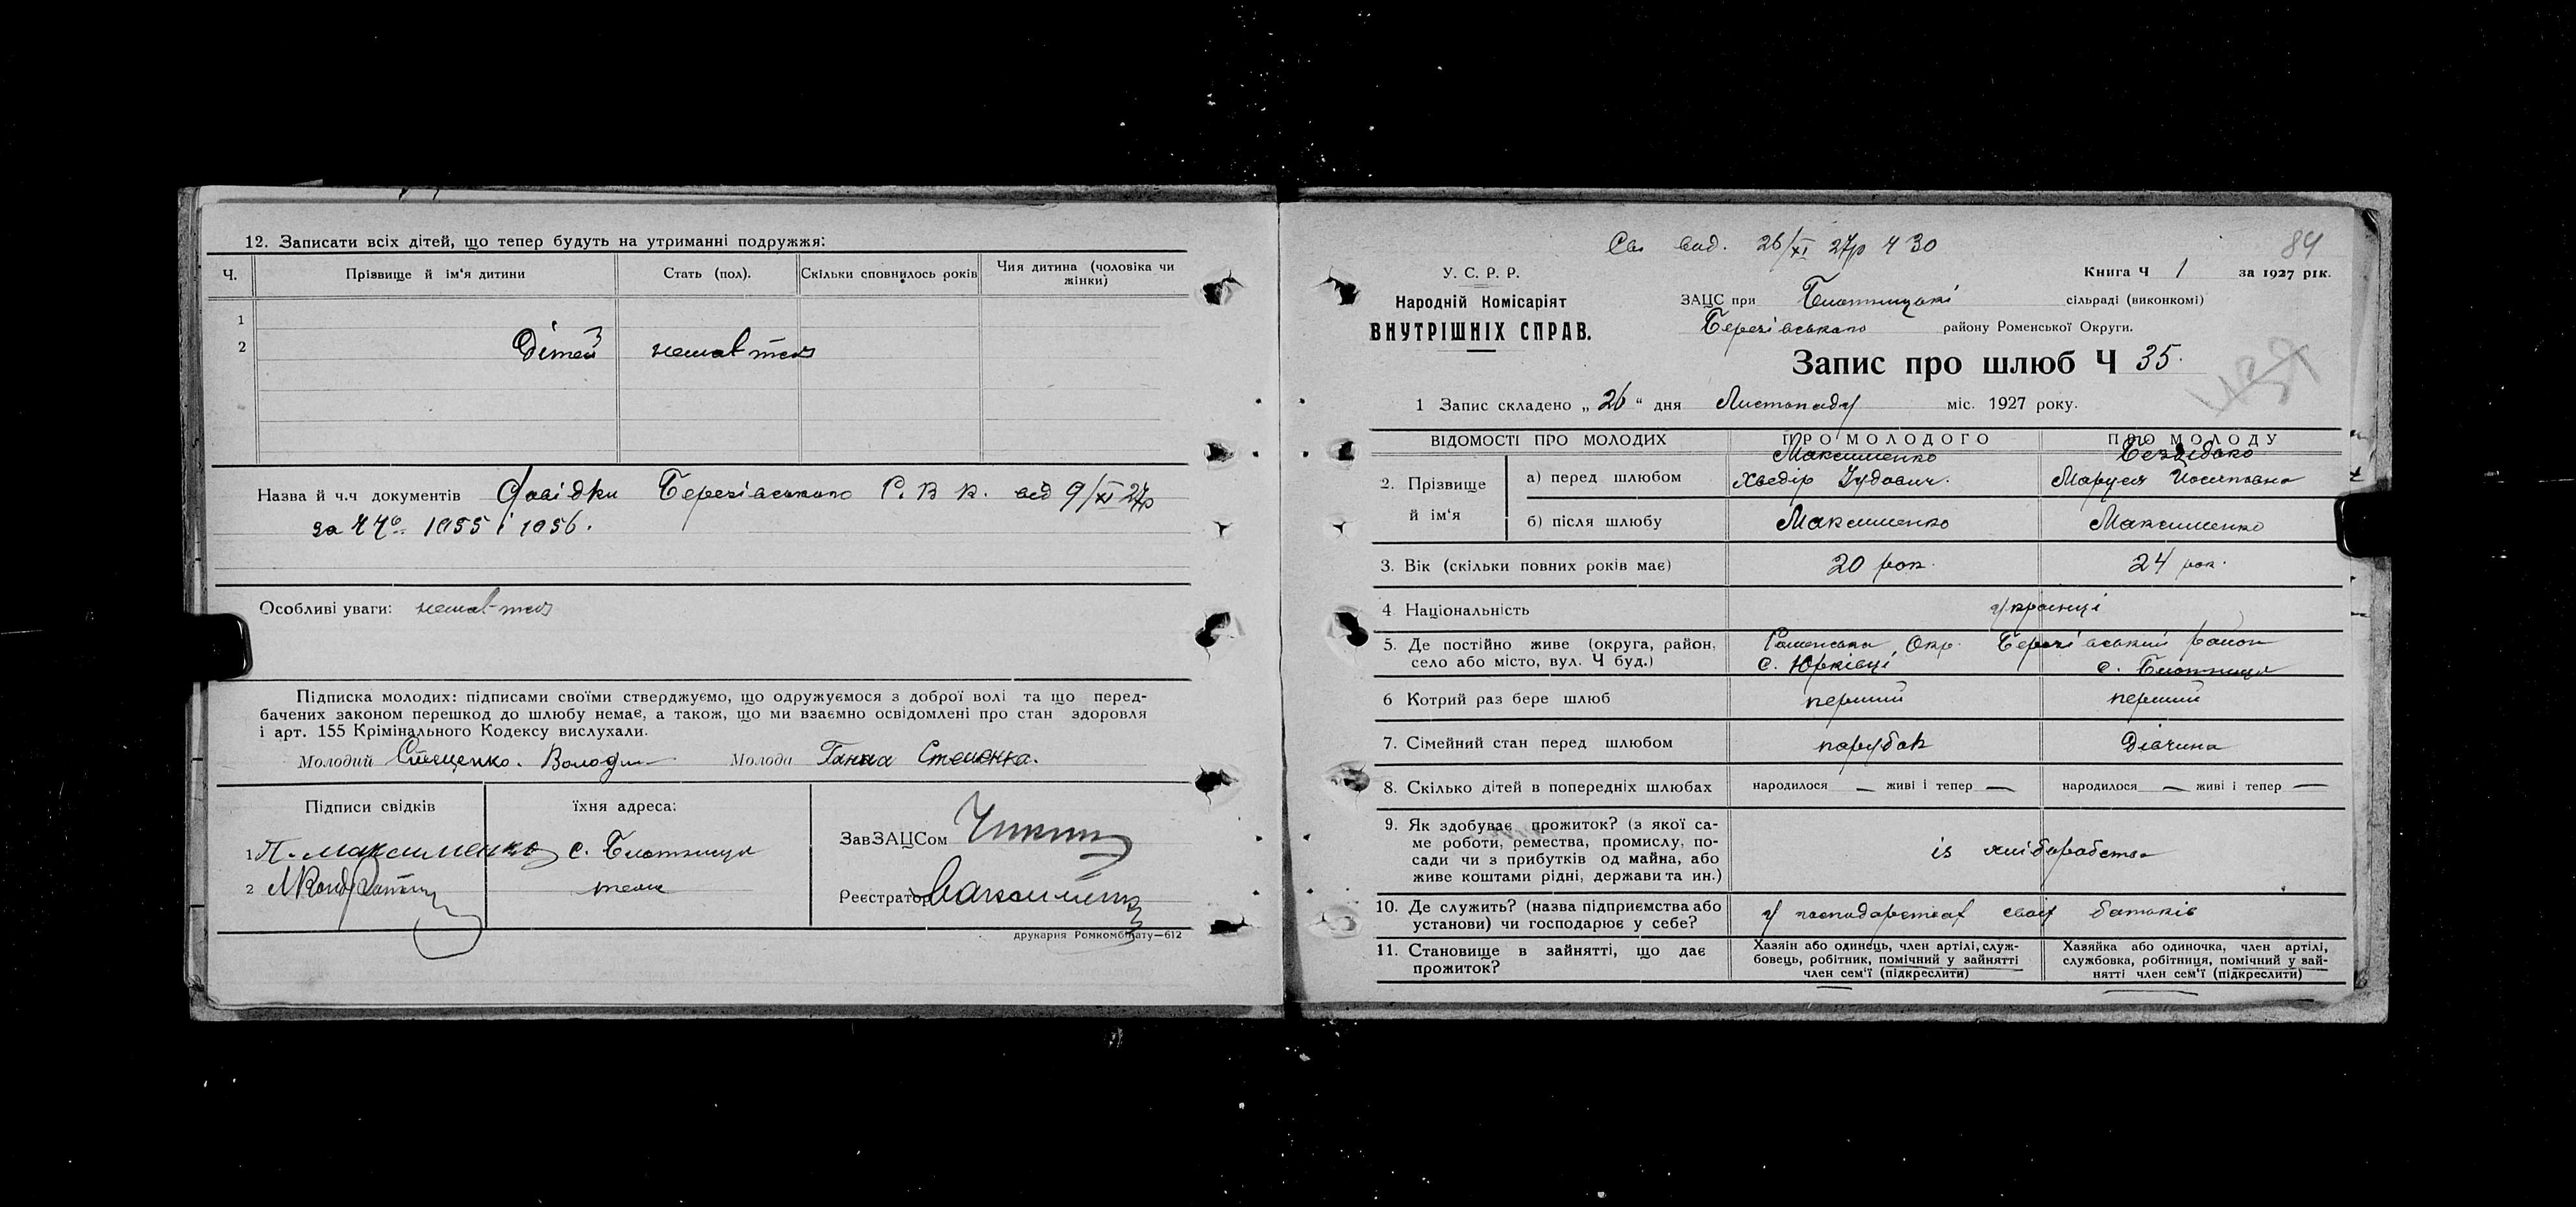 12. Записати всіх дітей, що тепер будуть на утриманні подружжя:
Ч. Прізвище й ім'я дитини Стать (пол). Скільки сповнилось років Чия дитина (чоловіка чи жінки)
1
2 Дітей немає
Назва й ч.ч документів Довідки Березівського Р. В. К. від 9/XI 27р
за 1055 і 1056.
Особливі уваги: немає
Підписка молодих: підписами своїми стверджуємо, що одружуємося з доброї волі та що перед-
бачених законом перешкод до шлюбу немає, а також, що ми взаємно освідомлені про стан здоровля
і арт. 155 Крімінального Кодексу вислухали.
Молодий Молода Ганна
Підписи свідків їхня адреса:
1 П. Максименко с. Блотниця
2 теж
ЗавЗАЦСом
Реєстратор
друкарня Ромкомбінату—612
Св вид. 26/XI 27р Ч 30
84
У. С. Р. Р.
Народній Комісаріят
ВНУТРІШНІХ СПРАВ.
Книга Ч 1 за 1927 рік.
ЗАЦС при Блотницькі сільраді (виконкомі)
Березівського району Роменської Округи.
Запис про шлюб Ч 35.
1 Запис складено „ 26 " дня Листопаду міс. 1927 року.
ВІДОМОСТІ ПРО МОЛОДИХ ПРО МОЛОДОГО ПРО МОЛОДУ
2. Прізвище й ім'я
а) перед шлюбом Максименко Хведір Юдович. Бездідько Маруся Йосиповна
б) після шлюбу Максименко Максименко
3. Вік (скільки повних років має) 20 рок. 24 рок.
4 Національність українці
5. Де постійно живе (округа, район, Роменська Окр. Березівський район
село або місто, вул. Ч буд.) с. Юрківці с. Блотниця
6 Котрий раз бере шлюб перший перший
7. Сімейний стан перед шлюбом парубок Дівчина
8. Скілько дітей в попередніх шлюбах народилося — живі і тепер — народилося — живі і тепер —
9. Як здобуває прожиток? (з якої са-
ме роботи, ремества, промислу, по-
сади чи з прибутків од майна, або
живе коштами рідні, держави та ин.)
із хліборобства
10. Де служить? (назва підприємства або
установи) чи господарює у себе?
у господарствах своїх батьків
11. Становище в зайнятті, що дає
прожиток?
Хазяін або одинець, член артілі, служ-
бовець, робітник, помічний у зайнятті
член сем'ї (підкреслити)
Хазяйка або одиночка, член артілі,
службовка, робітниця, помічний у зай-
нятті член сем'ї (підкреслити)